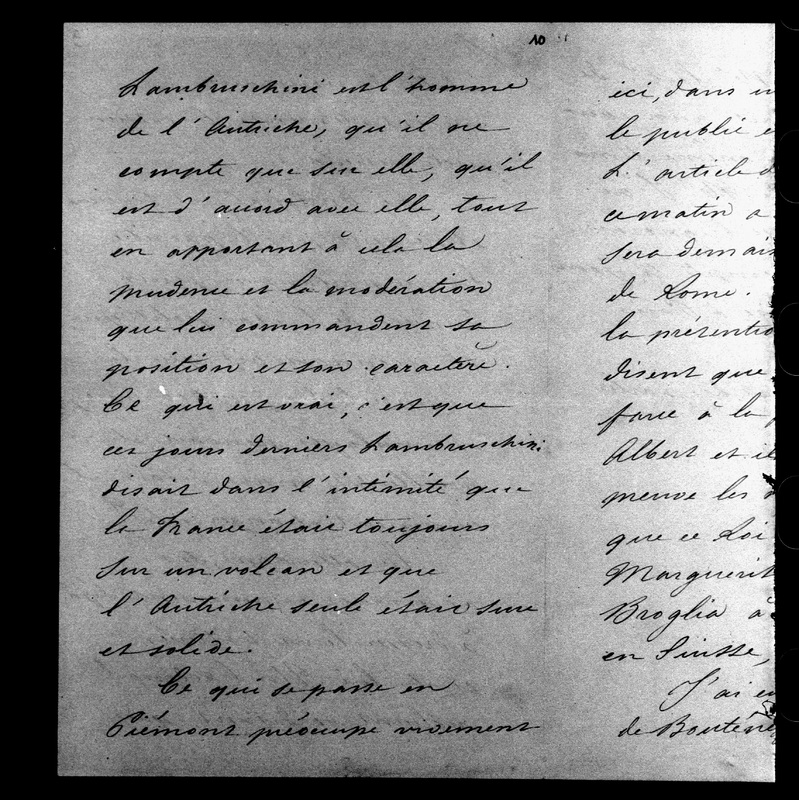 10
Lambruschini est l'homme
de l'Autriche, qu'il ne
compte que sur elle, qu'il
est d'accord avec elle, tout
en apportant à cela la
prudence et la modération
que lui commandent sa
position et son caractère.
Ce qui est vrai, c'est que
ces jours derniers Lambruschini
disait dans l'intimité que
la France était toujours
sur un volcan et que
l'Autriche seule était sure
et solide.
Ce qui se passe en
Piémont préoccupe vivement
ici, dans
le publié
L'article
ce matin a
sera demain
de Rome.
la prétention
disent que
à la
Albert et
preuve les
que ce Roi
Marguerit
Broglia à
en Suisse,
J'ai
de Bouténe